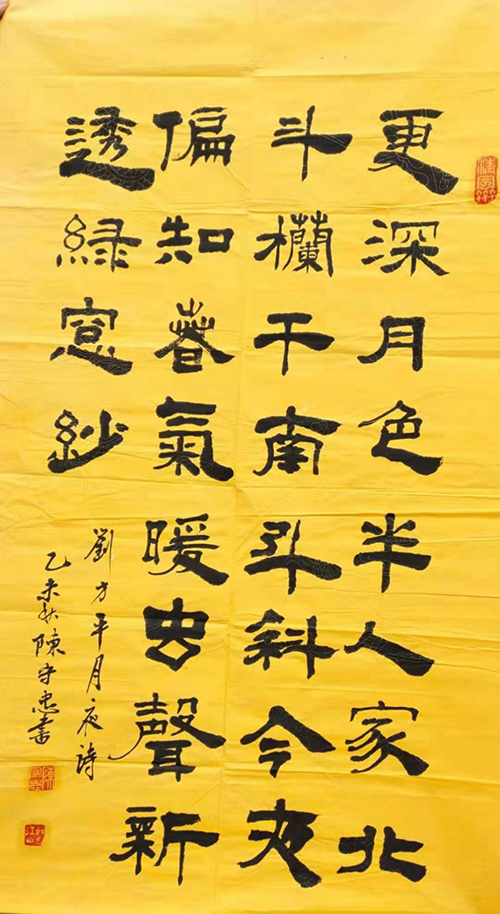 更深月色半人家北
斗欄干南斗斜今夜
偏知春氣暖虫聲新
透綠窓紗
劉方平月夜詩
乙未秋陳守忠書